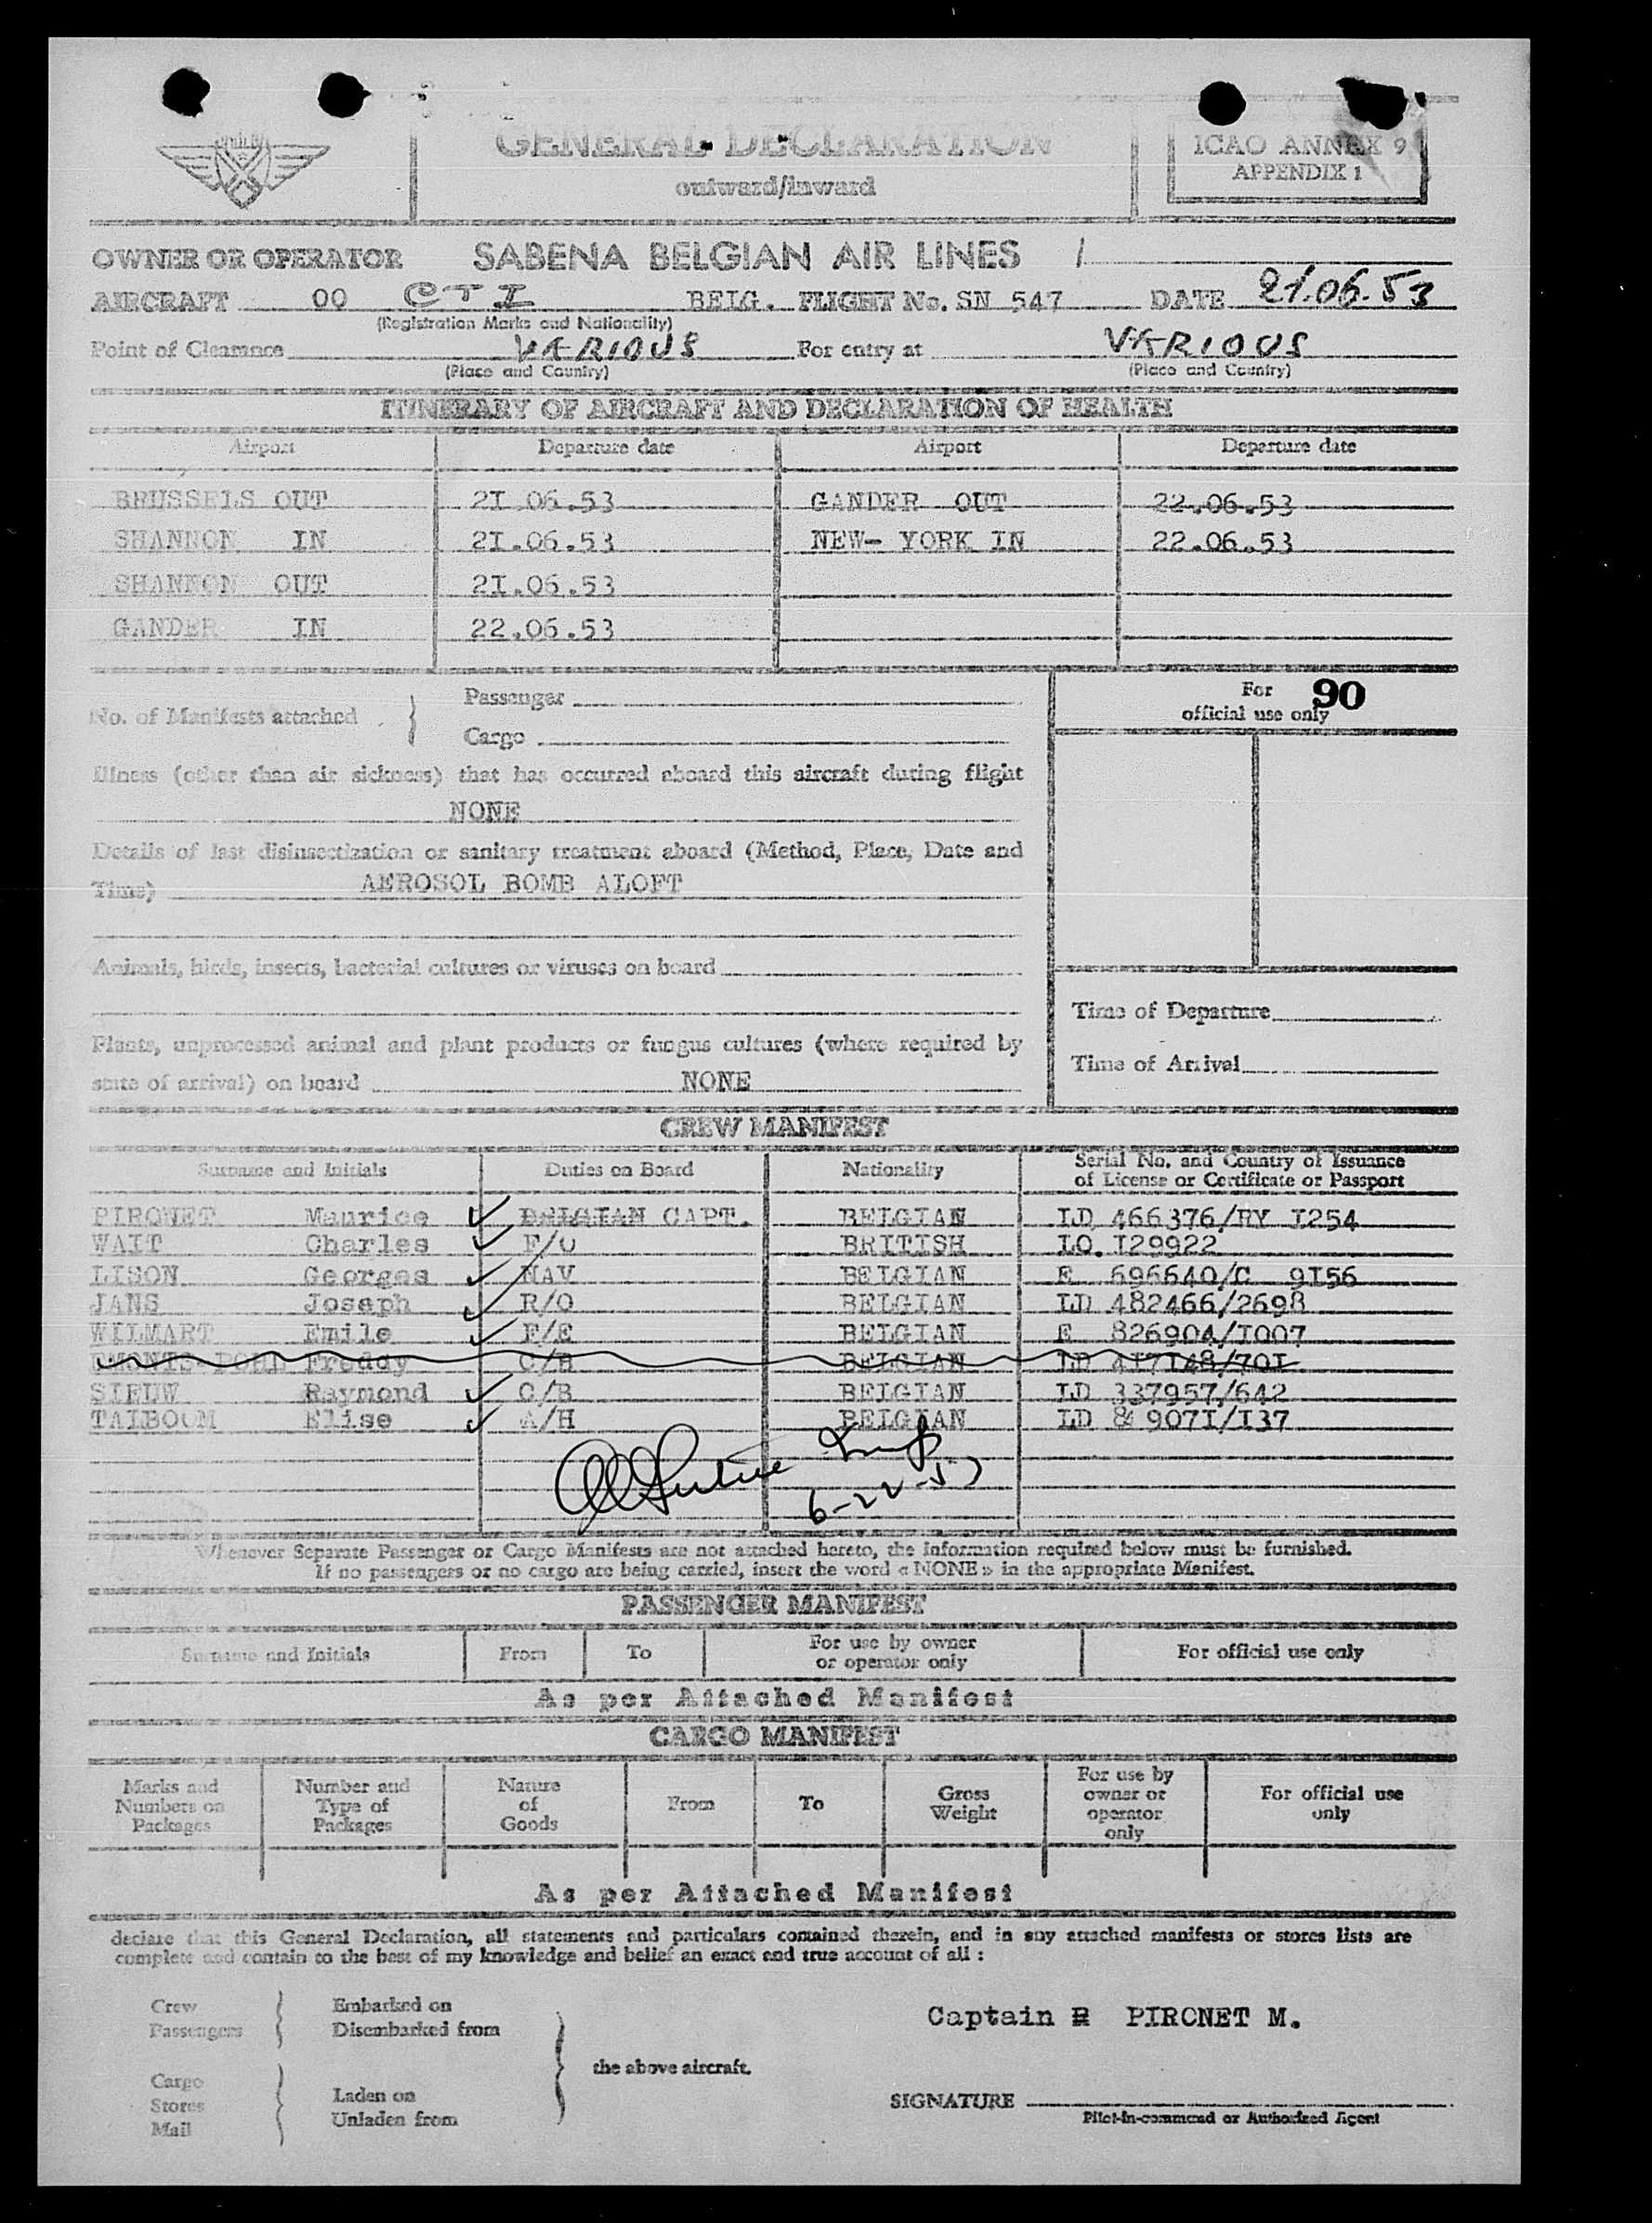 GENERAL DECLARATION
outward/inward
ICAO ANNEX 9
APPENDIX 1
OWNER OR OPERATOR SABENA BELGIAN AIR LINES /
AIRCRAFT OO CTI BELG. FLIGHT No. SN 547 DATE 21.06.53
(Registration Marks and Nationality)
Point of Clearance VARIOUS For entry at VARIOUS
(Place and Country) (Place and Country)
ITINERARY OF AIRCRAFT AND DECLARATION OF HEALTH
Airport Departure date Airport Departure date
BRUSSELS OUT 2I.06.53 GANDER OUT 22.06.53
SHANNON IN 2I.06.53 NEW- YORK IN 22.06.53
SHANNON OUT 2I.06.53
GANDER IN 22.06.53
No. of Manifests attached } Passenger
Cargo
For 90
official use only
Illness (other than air sickness) that has occurred aboard this aircraft during flight
NONE
Details of last disinsectization or sanitary treatment aboard (Method, Place, Date and
Time) AEROSOL BOMB ALOFT
Animals, birds, insects, bacterial cultures or viruses on board
Time of Departure
Plants, unprocessed animal and plant products or fungus cultures (where required by
Time of Arrival
state of arrival) on board NONE
CREW MANIFEST
Surname and Initials Duties on Board Nationality Serial No. and Country of Issuance
of License or Certificate or Passport
PIRONET Maurice BELGIAN CAPT. BELGIAN LD 466376/RY I254
WAIT Charles F/O BRITISH LO. I29922
LISON Georges NAV BELGIAN E 696640/C 9I56
JANS Joseph R/O BELGIAN LD 482466/2698
WILMART Emile F/E BELGIAN E 826904/I007
Freddy C/B BELGIAN LD 4I7I48/70I
SIEUW Raymond C/B BELGIAN LD 337957/642
TALBOOM Elise A/H BELGIAN LD & 907I/I37
6-22-53
Whenever Separate Passenger or Cargo Manifests are not attached hereto, the information required below must be furnished.
If no passengers or no cargo are being carried, insert the word « NONE » in the appropriate Manifest.
PASSENGER MANIFEST
Surname and Initials From To For use by owner
or operator only For official use only
As per Attached Manifest
CARGO MANIFEST
Marks and
Numbers on
Packages
Number and
Type of
Packages
Nature
of
Goods
From
To
Gross
Weight
For use by
owner or
operator
only
For official use
only
As per Attached Manifest
declare that this General Declaration, all statements and particulars contained therein, and in any attached manifests or stores lists are
complete and contain to the best of my knowledge and belief an exact and true account of all :
Crew } Embarked on
Passengers Disembarked from
Captain R PIRONET M.
the above aircraft.
Cargo
Stores } Laden on
Mail Unladen from
SIGNATURE
Pilot-in-command or Authorized Agent